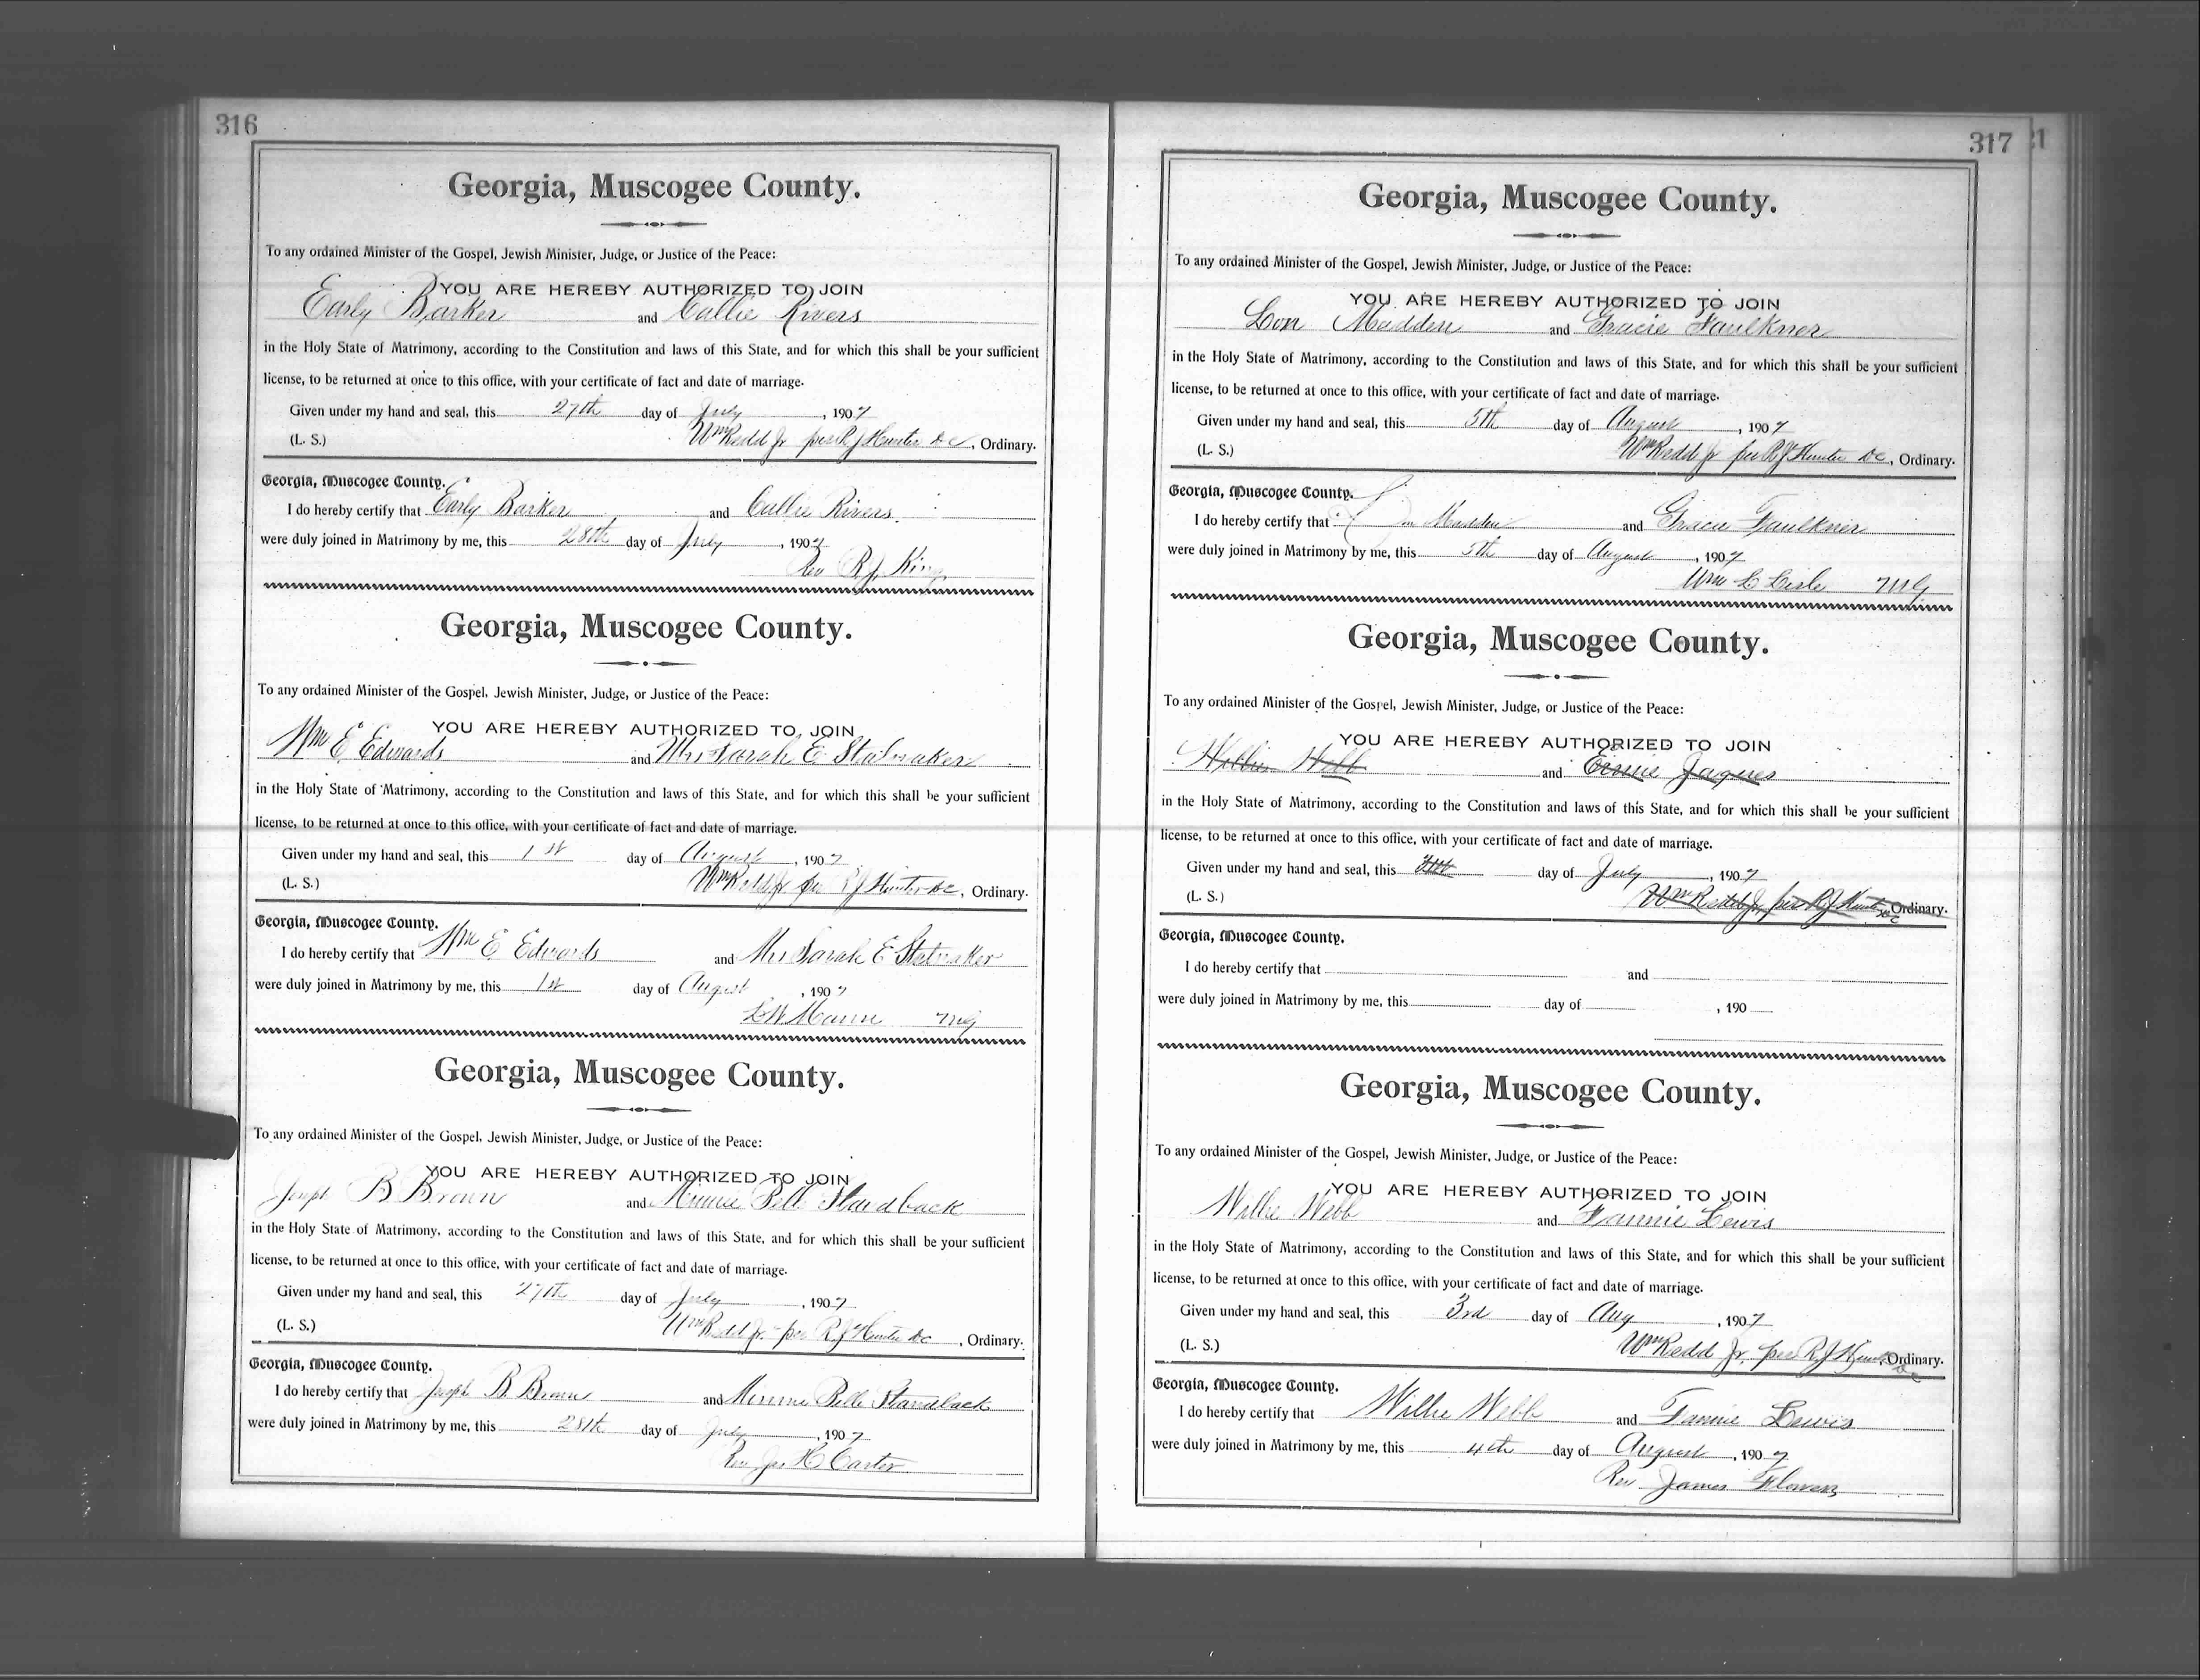 316
Georgia, Muscogee County.
To any ordained Minister of the Gospel, Jewish Minister, Judge, or Justice of the Peace:
YOU ARE HEREBY AUTHORIZED TO JOIN
Early Barker and Callie Rivers
in the Holy State of Matrimony, according to the Constitution and laws of this State, and for which this shall be your sufficient
license, to be returned at once to this office, with your certificate of fact and date of marriage.
Given under my hand and seal, this 27th day of July, 1907
(L. S.) Wm Redd Jr per R J Hunter DC, Ordinary.
Georgia, Muscogee County.
I do hereby certify that Early Barker and Callie Rivers
were duly joined in Matrimony by me, this 28th day of July, 1907
Rev R. J. King
Georgia, Muscogee County.
To any ordained Minister of the Gospel, Jewish Minister, Judge, or Justice of the Peace:
YOU ARE HEREBY AUTHORIZED TO JOIN
Wm E. Edwards and Mrs Sarah E Stalnaker
in the Holy State of Matrimony, according to the Constitution and laws of this State, and for which this shall be your sufficient
license, to be returned at once to this office, with your certificate of fact and date of marriage.
Given under my hand and seal, this 1st day of August, 1907
(L. S.) Wm Redd Jr per R J Hunter DC, Ordinary.
Georgia, Muscogee County.
I do hereby certify that Wm E. Edwards and Mrs Sarah E Stalnaker
were duly joined in Matrimony by me, this 1st day of August, 1907
L W Mann MG
Georgia, Muscogee County.
To any ordained Minister of the Gospel, Jewish Minister, Judge, or Justice of the Peace:
YOU ARE HEREBY AUTHORIZED TO JOIN
Joseph B Brown and Minnie Belle Standback
in the Holy State of Matrimony, according to the Constitution and laws of this State, and for which this shall be your sufficient
license, to be returned at once to this office, with your certificate of fact and date of marriage.
Given under my hand and seal, this 27th day of July, 1907
(L. S.) Wm Redd Jr. per R J Hunter DC, Ordinary.
Georgia, Muscogee County.
I do hereby certify that Joseph B. Brown and Minnie Belle Standback
were duly joined in Matrimony by me, this 28th day of July, 1907
Rev Jas H Carter
317
Georgia, Muscogee County.
To any ordained Minister of the Gospel, Jewish Minister, Judge, or Justice of the Peace:
YOU ARE HEREBY AUTHORIZED TO JOIN
Lon Madden and Gracie Faulkner
in the Holy State of Matrimony, according to the Constitution and laws of this State, and for which this shall be your sufficient
license, to be returned at once to this office, with your certificate of fact and date of marriage.
Given under my hand and seal, this 5th day of August, 1907
(L. S.) Wm Redd Jr per R J Hunter DC, Ordinary.
Georgia, Muscogee County.
I do hereby certify that Lon Madden and Gracie Faulkner
were duly joined in Matrimony by me, this 5th day of August, 1907
Wm L Lisle MG
Georgia, Muscogee County.
To any ordained Minister of the Gospel, Jewish Minister, Judge, or Justice of the Peace:
YOU ARE HEREBY AUTHORIZED TO JOIN
Willie Webb and Jaques
in the Holy State of Matrimony, according to the Constitution and laws of this State, and for which this shall be your sufficient
license, to be returned at once to this office, with your certificate of fact and date of marriage.
Given under my hand and seal, this day of July, 1907
(L. S.) Wm Redd Jr, per R J Hunter DC Ordinary.
Georgia, Muscogee County.
I do hereby certify that and
were duly joined in Matrimony by me, this day of , 190
Georgia, Muscogee County.
To any ordained Minister of the Gospel, Jewish Minister, Judge, or Justice of the Peace:
YOU ARE HEREBY AUTHORIZED TO JOIN
Willie Webb and Fannie Lewis
in the Holy State of Matrimony, according to the Constitution and laws of this State, and for which this shall be your sufficient
license, to be returned at once to this office, with your certificate of fact and date of marriage.
Given under my hand and seal, this 3rd day of Aug, 1907
(L. S.) Wm Redd Jr. per R J Hunter DC, Ordinary.
Georgia, Muscogee County.
I do hereby certify that Willie Webb and Fannie Lewis
were duly joined in Matrimony by me, this 4th day of August, 1907
Rev James Flowers